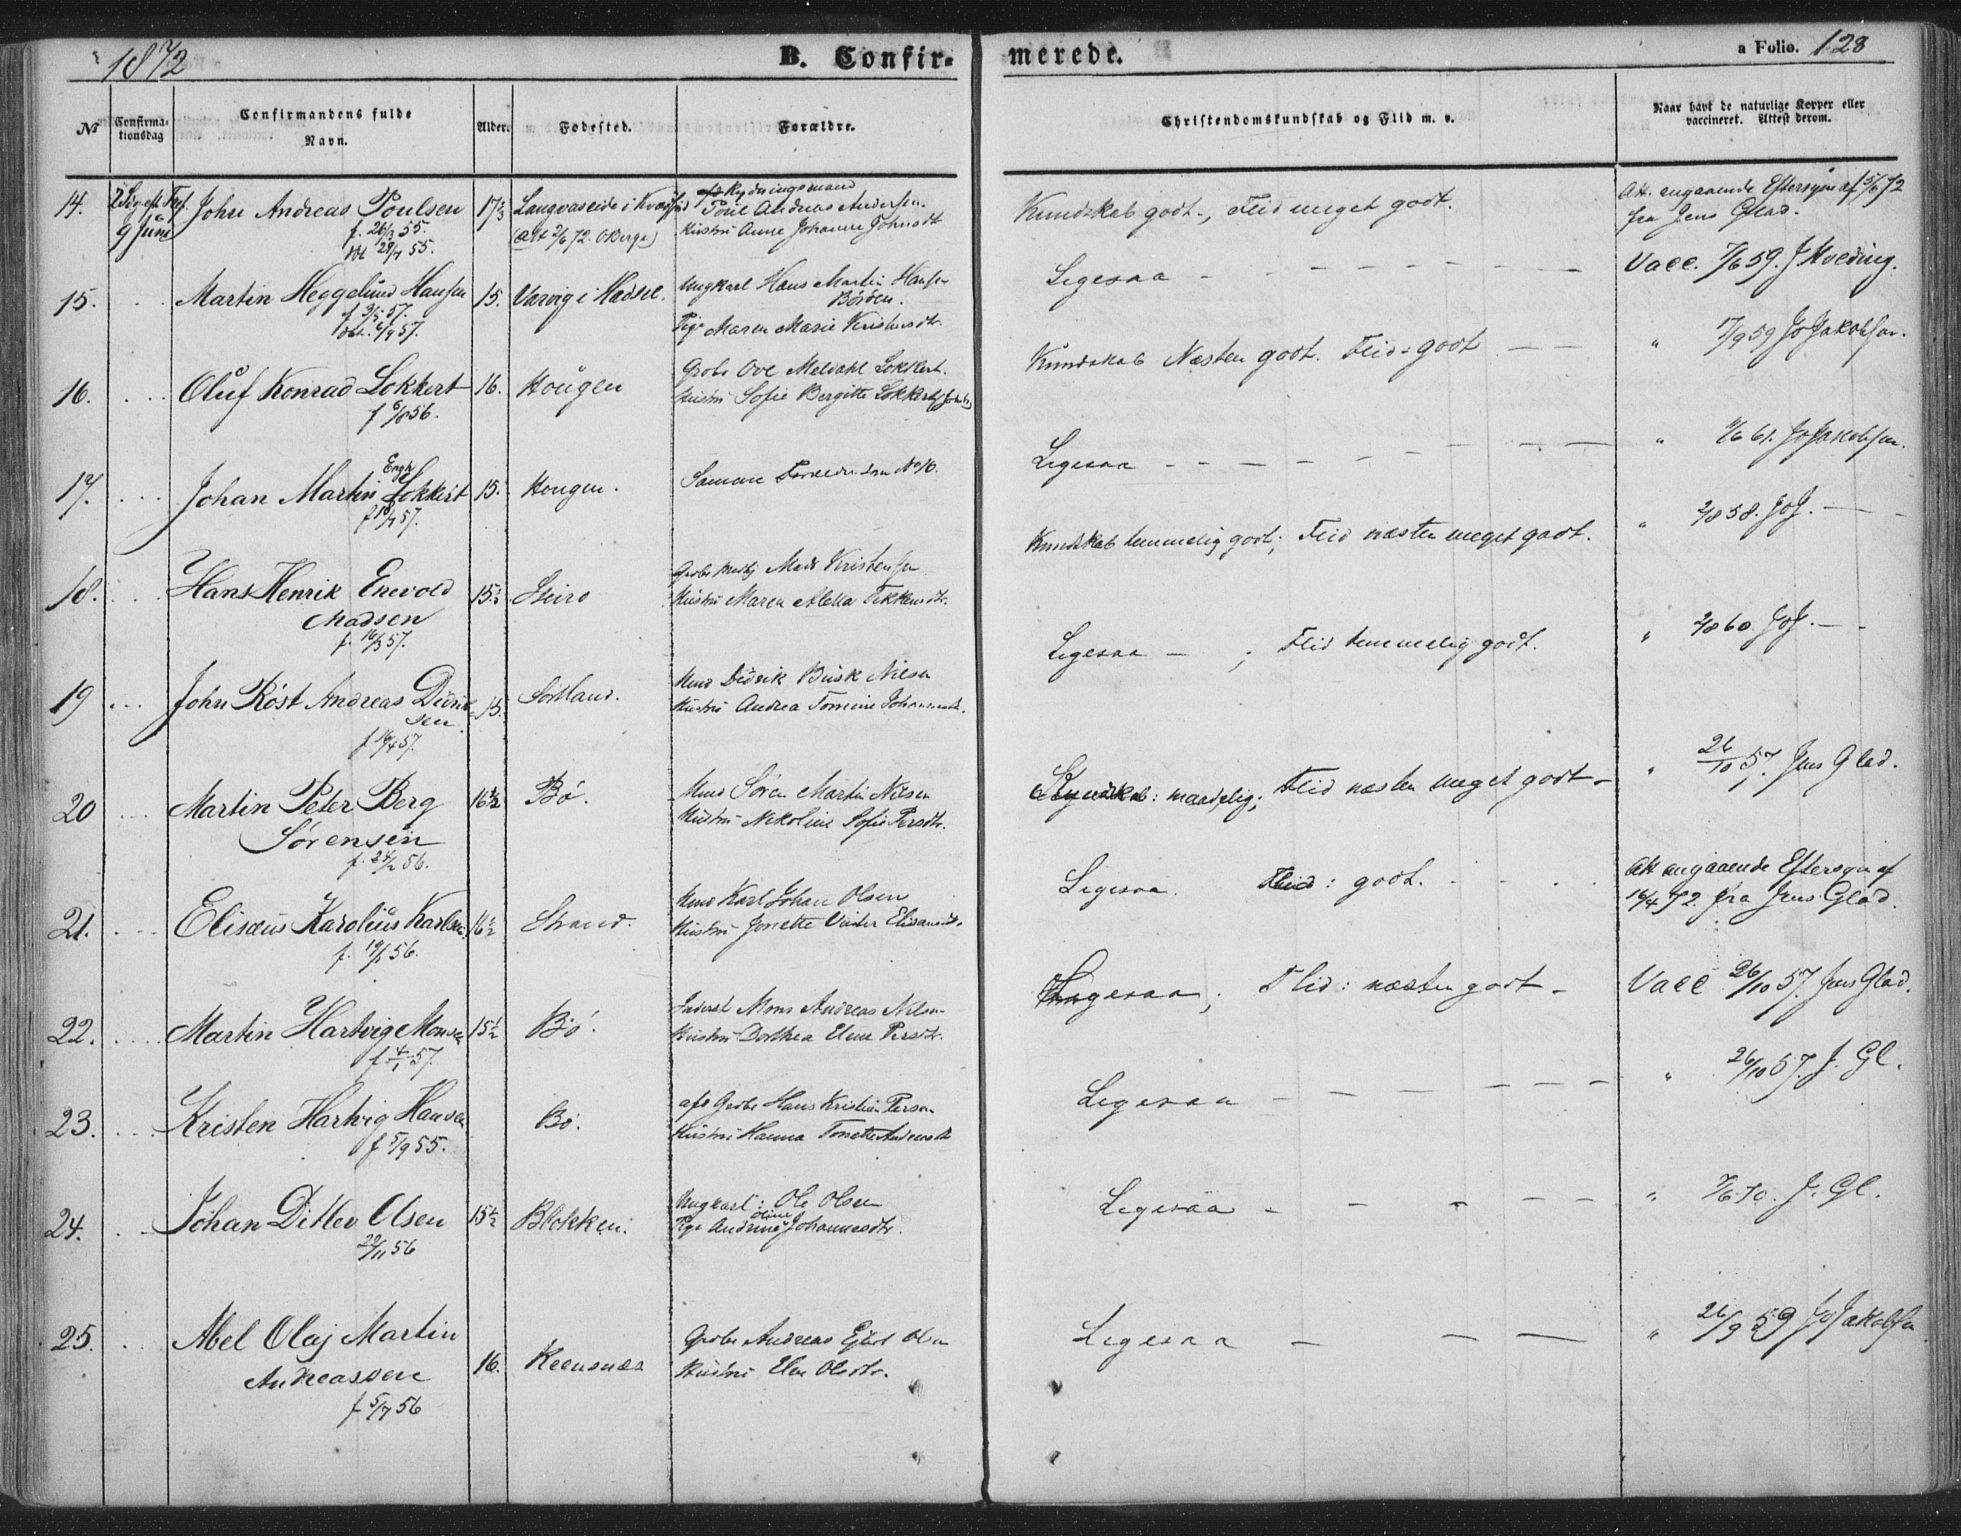 1872
B. Confir-
merede.
a Folio. 128
No
Confirma-
tionsdag
Confirmandens fulde
Navn.
Alder.
Fødested.
Forældre.
Christendomskundskab og Flid m. v.
Naar havt de naturlige Kopper eller
vaccineret. Attest derom.
14.
2 S. eft. Tref.
9 Juni
John Andreas Poulsen
f. 26/3 55.
29/7 55.
17 1/3
Langvaseide i Kvædfjord
(Att 2/6 72. O Berge)
Rydningsmand
Poul Andreas Andersen.
Hustru Anne Johanne Johnsdt
Kundskab godt., Flid meget godt.
Att. angaaende Eftersyn af 5/6 72
fra Jens Glad.
15.
Martin Heggelund Hansen
f 3/5 57.
dbt. 6/9 57.
15.
Varvig i Hadsel.
Ungkarl Hans Martin Hansen
Böröen.
Pige Maren Marie Kristensdtr.
Ligesaa - - - - - - - -
Vacc. 7/6 59. J Hveding.
16.
Oluf Konrad Lokkert
f 6/8 56.
16.
Hougen
Grbr Ove Meldahl Lokkert.
Hustru Sofie Bergitte Lokkert
Kundskab Næsten godt. Flid: godt - -
" 17/9 59 Jo Jakobsen.
17.
Engh
Johan Martin Lokkert
f 18/7 57.
15.
Hougen.
Samme Forældre som No 16.
Ligesaa - - - - - - - -
" 9/6 61. Jo Jakobsen.
18.
Hans Henrik Enevold
Madsen
f. 16/3 57.
15 1/4
Steiro
Mads Kristensen
Hustru Maren Aletta
Kundskab temmelig godt; Flid næsten meget godt.
" 2/8 58. JoJ. - -
19
John Röst Andreas Didrik-
sen
f 16/4 57.
15.
Sortland.
Mand Didrik Busk Nilsen
Hustru Andrea Tomine
Ligesaa - ; Flid temmelig godt.
" 2/8 60. JoJ. - -
20
Martin Peter Berg
Sørensen
f. 24/2 56.
16 1/2
Bö.
Mand Sören Martin Nilsen
Hustru Nikoline Sofie Persdtr.
Kundskab: maadelig; Flid næsten meget godt -
" 26/10 57. Jens Glad.
21.
Elisæus Karolius Karlsen
f. 19/1 56.
16 1/2
Strand.
Mand Karl Johan Olsen
Hustru Jonette
Ligesaa. Flid: godt. - - -
Att angaaende Eftersyn af
16/4 72 fra Jens Glad.
22.
Martin Hartvig Monsen
f 4/1 57.
15 1/2
Bö.
Inderst Mons Andreas Nilsen
Hustru Dorthea Eline Persdtr.
Ligesaa; Flid: næsten godt -
Vacc 26/10 57. Jens Glad.
23.
Kristen Hartvig Hansen
f 5/9 55.
Bö.
afd Grbr Hans Kristian Persen
Hustru Hanna Tonette Andersdt
Ligesaa - - - - - -
" 26/10 57. J. Gl.
24.
Johan Ditlev Olsen
29/11 56
15 1/2
Blokken.
Ungkarl: Ole Olsen
Oline
Pige Andrine Johannesdtr.
Ligesaa - - - - -
" 7/6 70. J. Gl.
25.
Abel Olaj Martin
Andreassen
f 5/7 56
16.
Reensnæs
Grbr Andreas Ejlert Olsen
Hustru Elen Olsdtr.
Ligesaa - - -
" 26/9 59 Jo Jakobsen